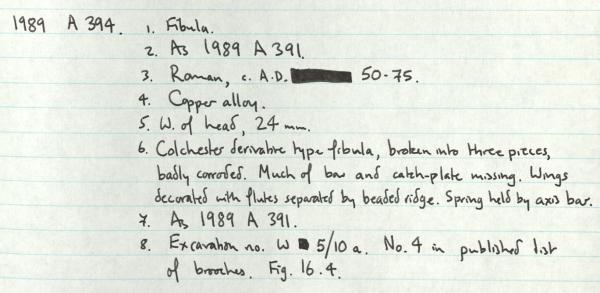 1989 A 394. 1. Fibula.
2. As 1989 A 391.
3. Roman, c. A.D. 50-75.
4. Copper alloy.
5. W. of head, 24 mm.
6. Colchester derivative type fibula, broken into three pieces,
badly corroded. Much of bow and catch-plate missing. Wings
decorated with flutes separated by beaded ridge. Spring held by axis bar.
7. As 1989 A 391.
8. Excavation no. W 5/10 a. No. 4 in published list
of brooches. Fig. 16.4.